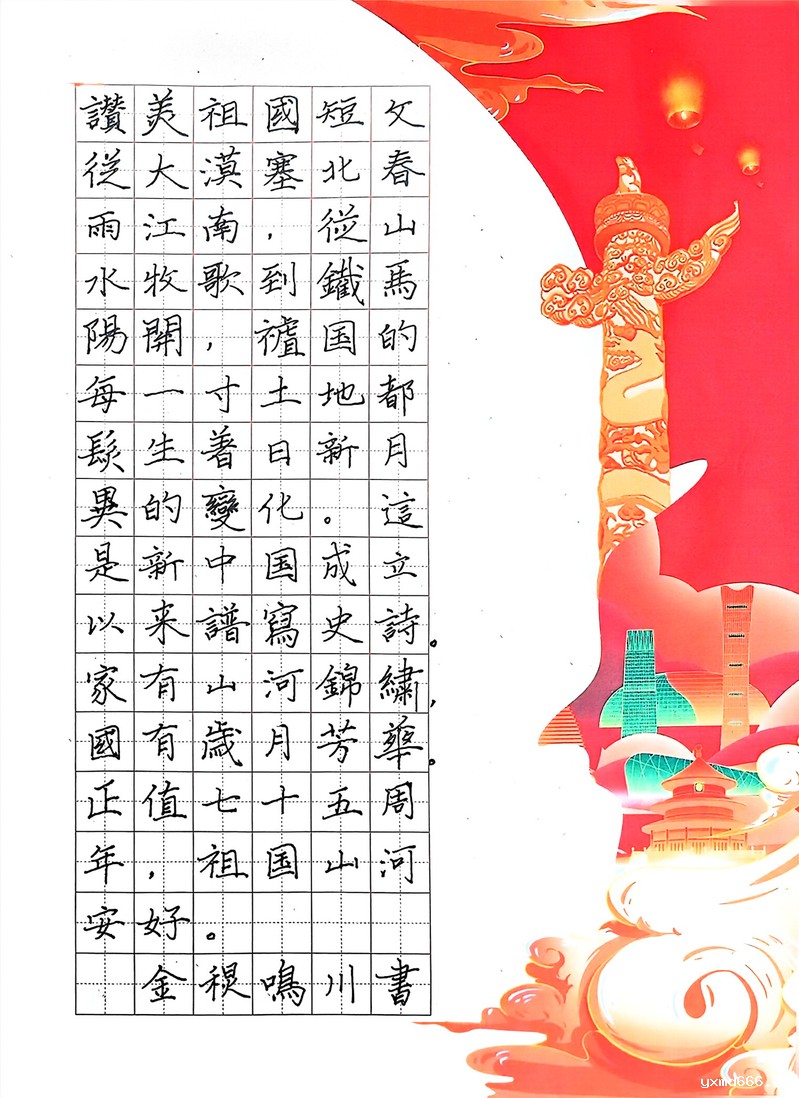 讚美祖國短文
從大漠塞北春
雨江南，從山
水牧歌到鐵馬
陽關，国的
每一寸土地都
發生著日新月
異的變化。這
是新中国成立
以来譜寫史詩。
家有山河錦繡，
國有歲月芳華。
正值七十五周
年，祖国山河
安好。
金稷鳴川書
yxmd666